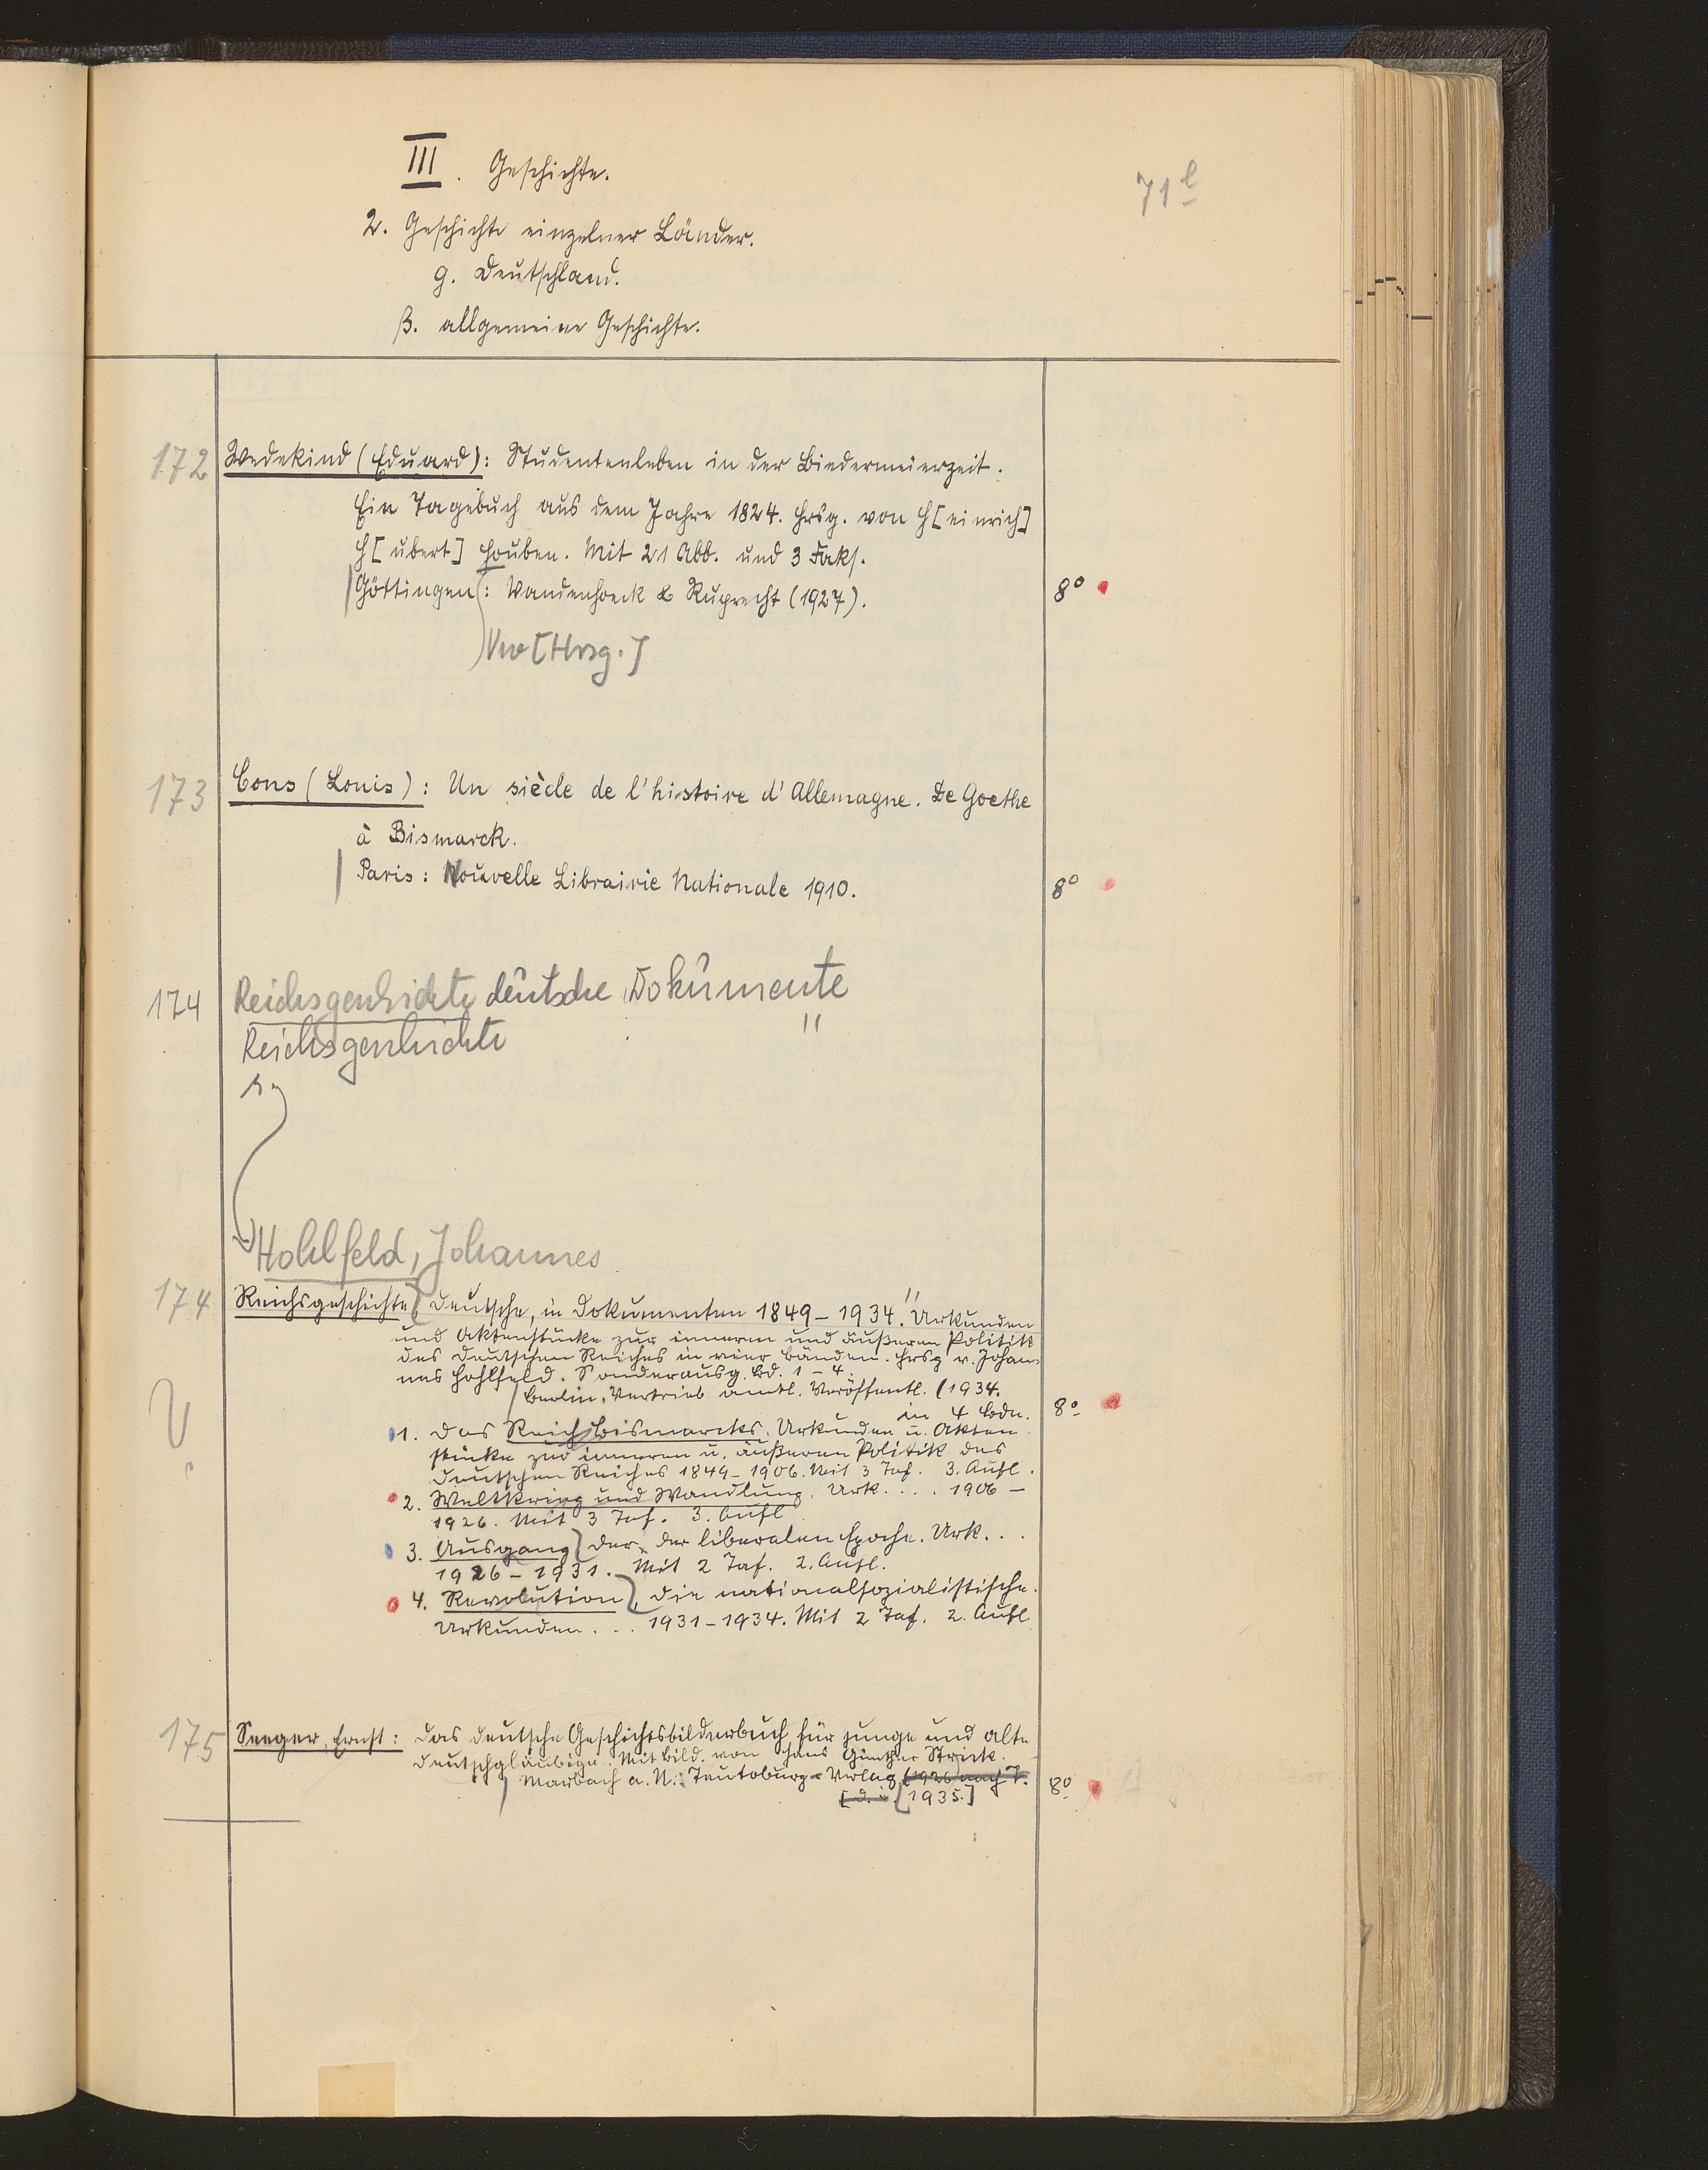 III. Geschichte.
71 l
2. Geschichte einzelner Länder.
g. Deutschland.
β. allgemeine Geschichte.
172 Wedekind (Eduard): Studentenleben in der Biedermeierzeit.
Ein Tagebuch aus dem Jahre 1824. Hrsg. von H[einrich]
H[ubert] Houben. Mit 21 Abb. und 3 Faks.
Göttingen: Vandenhoeck & Ruprecht (1927). 8º
[Hrsg.]
173 Cons (Louis): Un siècle de l'histoire d'Allemagne. De Goethe
à Bismarck.
Paris: Nouvelle Librairie Nationale 1910. 8º
174 Reichsgeschichte deutsche Dokumente "
Reichsgeschichte
Hohlfeld, Johannes
174 Reichsgeschichte, Deutsche, in Dokumenten 1849-1934." Urkunden
und Aktenstücke zur inneren und äußeren Politik
des Deutschen Reiches in vier Bänden. Hrsg v. Johan-
nes Hohlfeld. Sonderausg. Bd. 1-4.
Berlin: Vertrieb amtl. Veröffentl. (1934. 8º
in 4 Bdn.
1. Das Reich Bismarcks. Urkunden u. Akten
stücke zur inneren u. äußeren Politik des
Deutschen Reiches 1849-1906. Mit 3 Taf. 3. Aufl.
2. Weltkrieg und Wandlung. Urk. ... 1906-
1926. Mit 3 Taf. 3. Aufl
3. Ausgang, Der, der liberalen Epoche. Urk...
1926-1931. Mit 2 Taf. 2. Aufl.
4. Revolution, Die nationalsozialistische.
Urkunden... 1931-1934. Mit 2 Taf. 2. Aufl
175 Seeger, Ernst: Das deutsche Geschichtsbilderbuch für junge und alte
Deutschgläubige. Mit Bild. von Hans Günther Strick.
Marbach a. N.: Teutoburg-Verlag (1926) nach J.
[d. i. 1935.] 8º